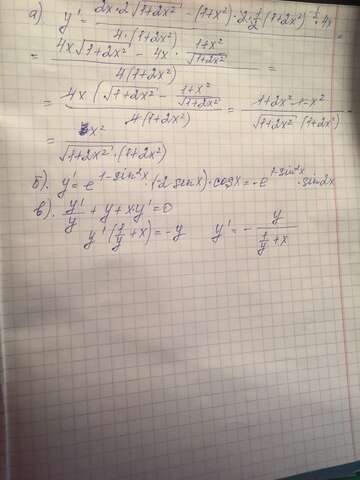 а). y' = (2x·2√(1+2x²) - (1+x²)·2·½(1+2x²)^(-½)·4x) / (4·(1+2x²)) =
= (4x√(1+2x²) - 4x · (1+x²)/√(1+2x²)) / (4(1+2x²)) =
= (4x(√(1+2x²) - (1+x²)/√(1+2x²))) / (4(1+2x²)) = (1+2x²-1-x²) / (√(1+2x²)(1+2x²)) =
= x² / (√(1+2x²)·(1+2x²))
б). y' = e^(1-sin²x)·(2 sinx)·cosx = -e^(1-sin²x)·sin2x
в). y'/y + y + x·y' = 0
y'(1/y + x) = -y y' = - y/(1/y + x)